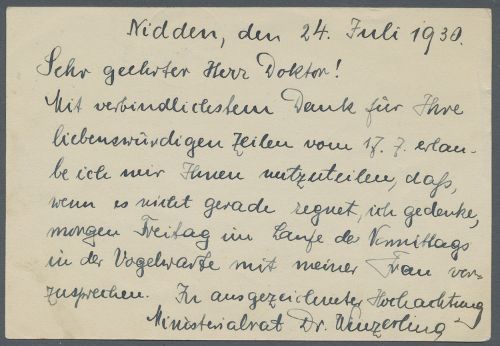 Nidden, den 24. Juli 1930.
Sehr geehrter Herr Doktor!
Mit verbindlichstem Dank für Ihre
liebenswürdigen Zeilen vom 17. 7. erlau-
be ich mir Ihnen mitzuteilen, daß,
wenn es nicht gerade regnet, ich gedenke,
morgen Freitag im Laufe des Vormittags
in der Vogelwarte mit meiner Frau vor-
zusprechen. In ausgezeichneter Hochachtung
Ministerialrat Dr.